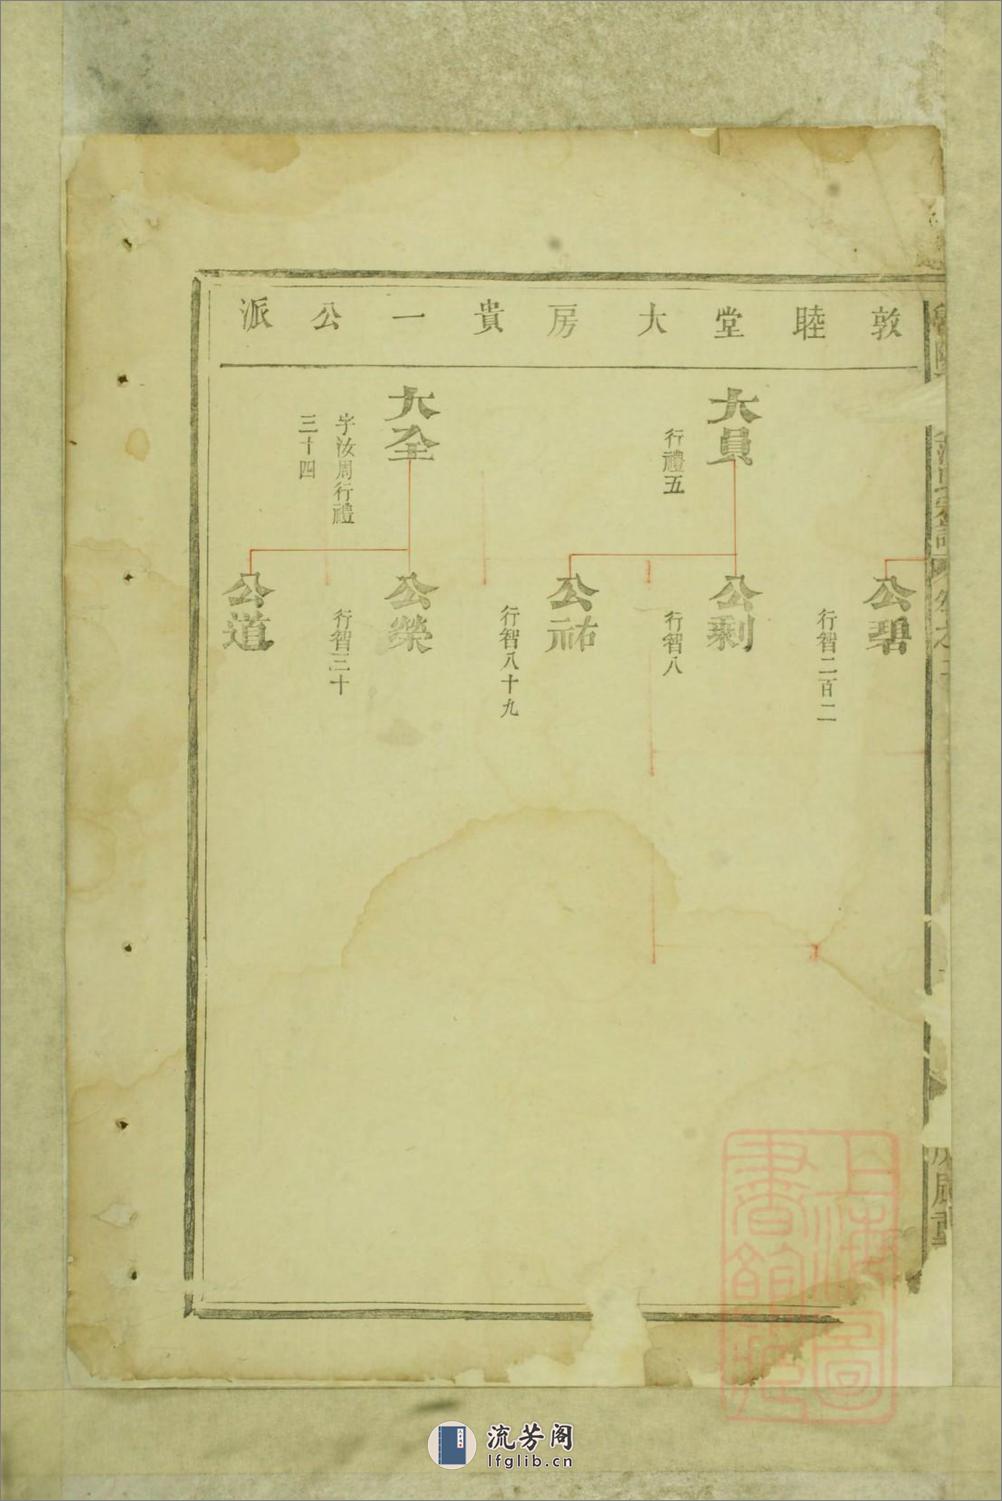 敦睦堂大房貴一公派
大員
行禮五
大全
字汝周行禮
三十四
公碧
行智二百二
公剩
行智八
公祐
行智八十九
公榮
行智三十
公道
上海圖
書館藏
流芳阁
lfglib.cn